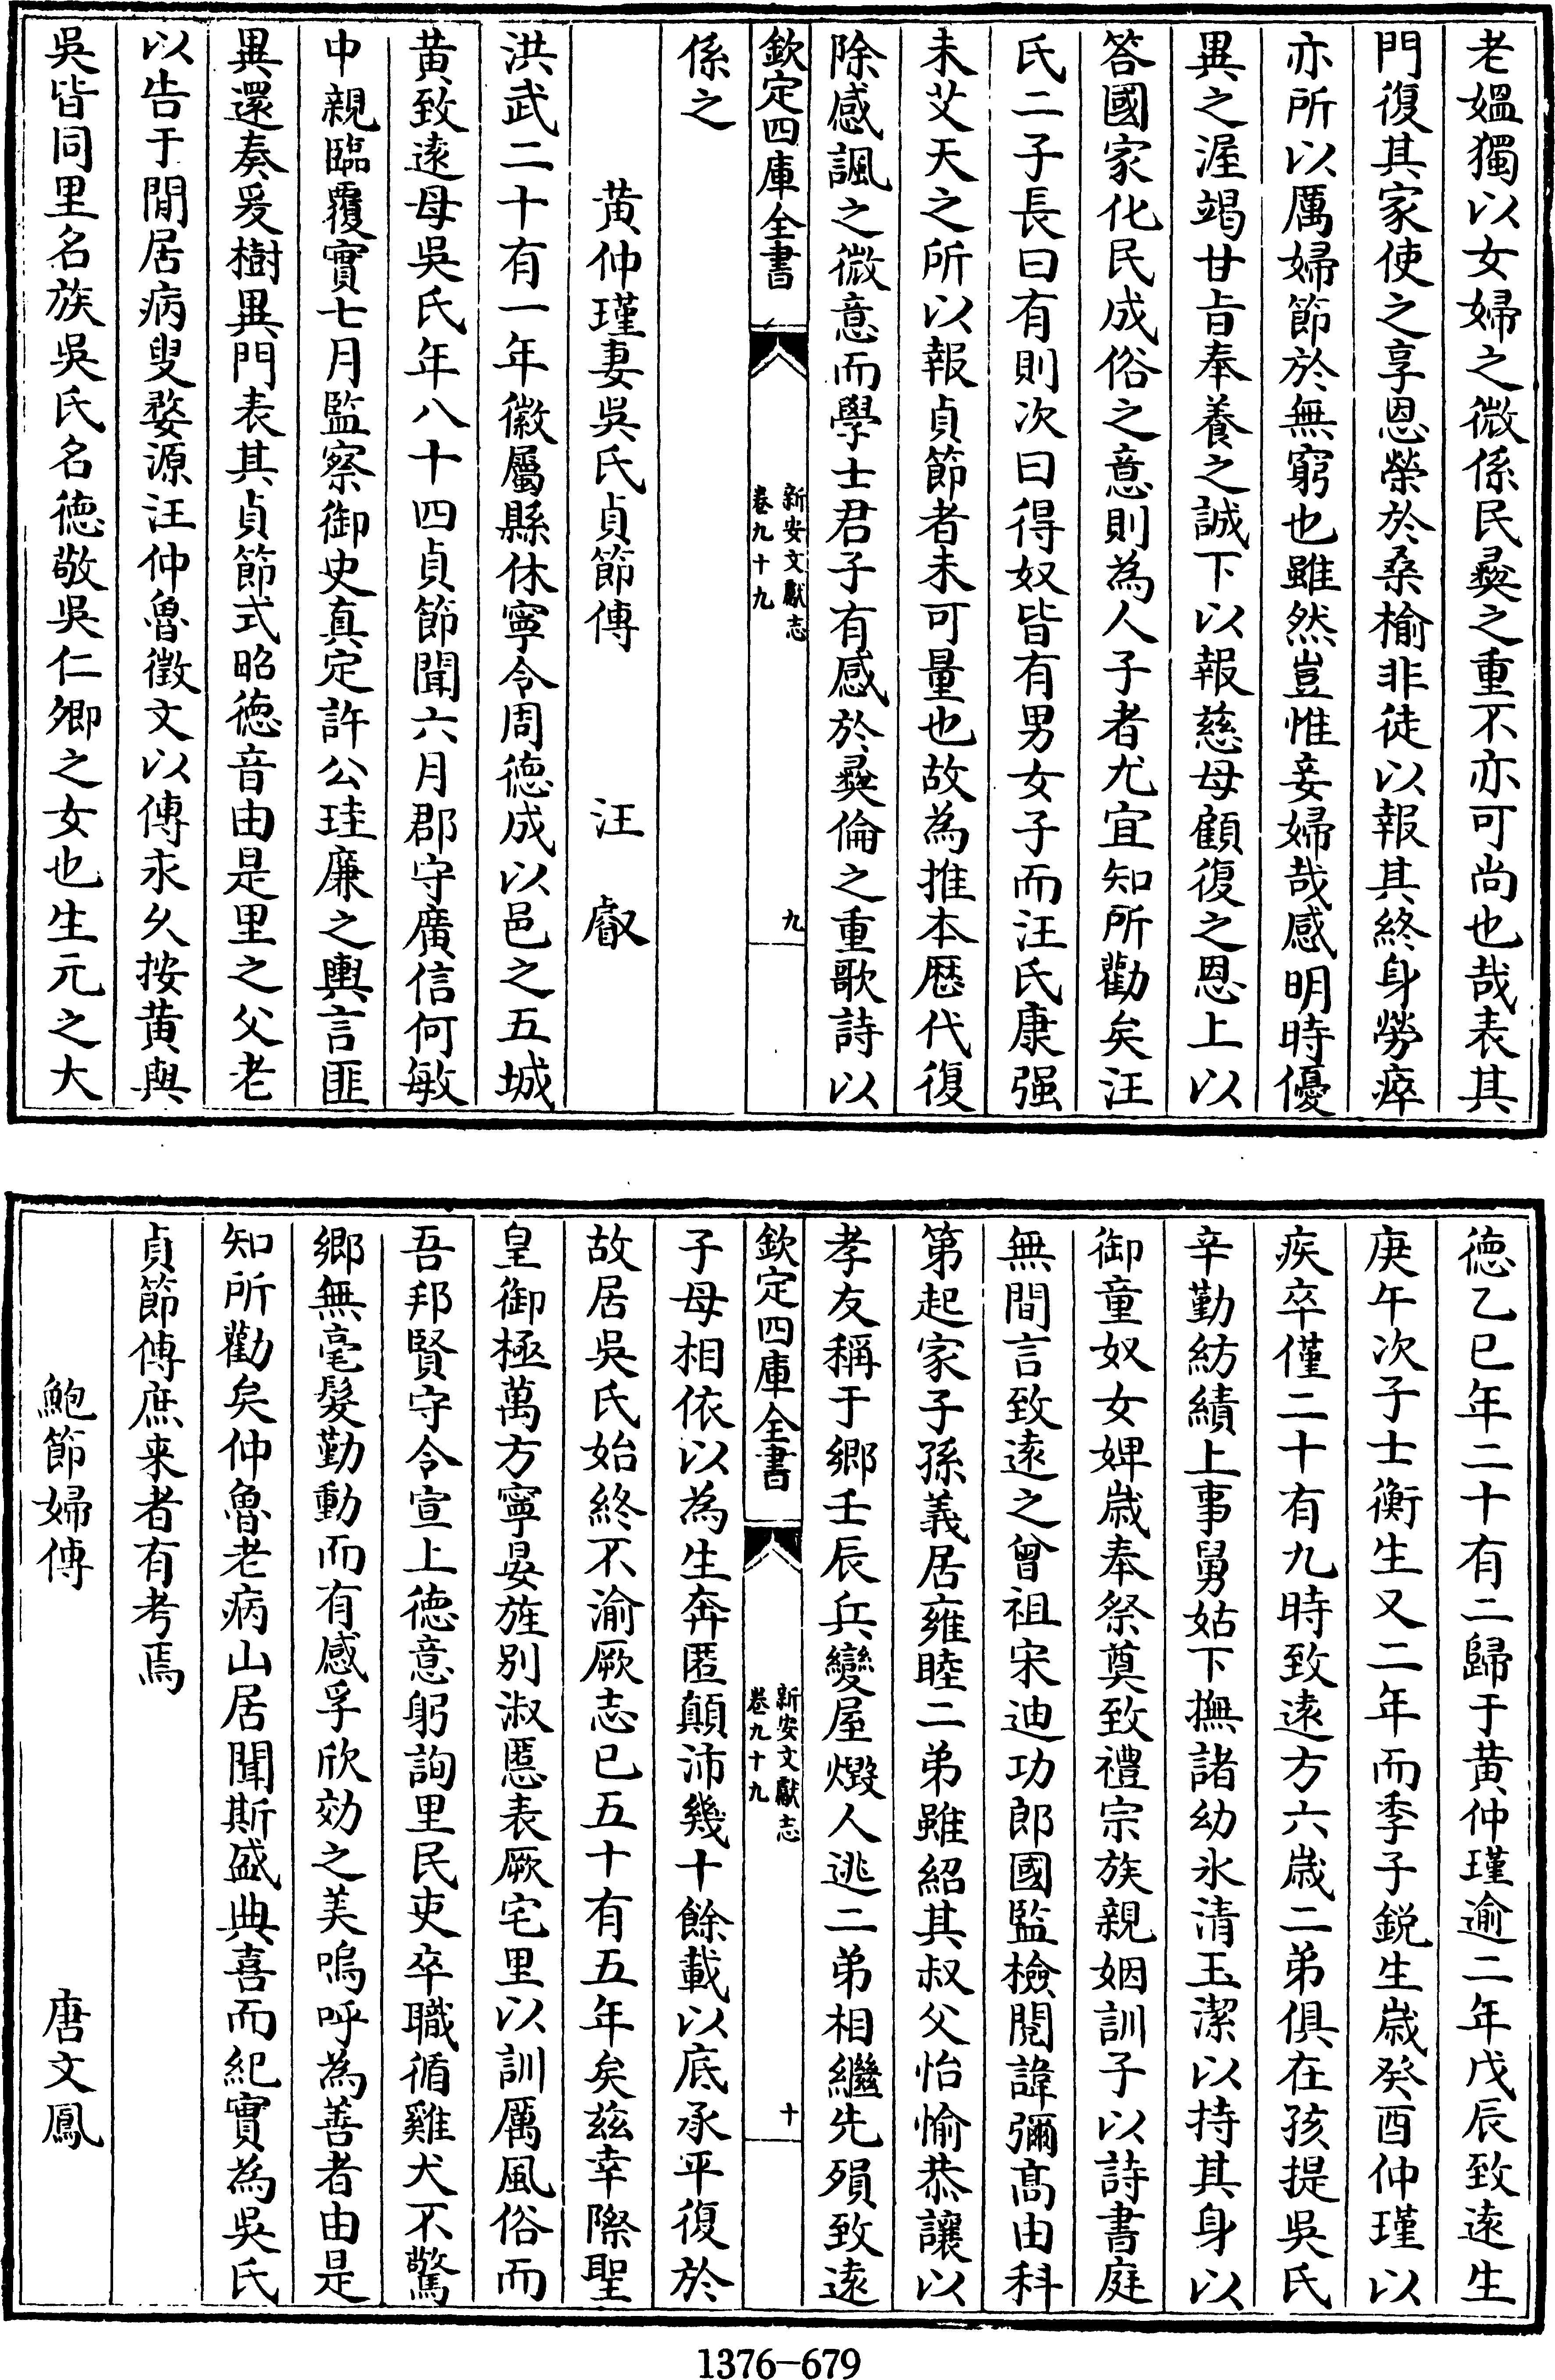 老媼獨以女婦之微係民彛之重不亦可尚也哉表其
門復其家使之享恩榮於桑榆非徒以報其終身勞瘁
亦所以厲婦節於無窮也雖然豈惟妾婦哉感明時優
異之渥竭甘㫖奉養之誠下以報慈母顧復之恩上以
答國家化民成俗之意則為人子者尤宜知所勸矣汪
氏二子長曰有則次曰得奴皆有男女子而汪氏康强
未艾天之所以報貞節者未可量也故為推本厯代復
除感諷之微意而學士君子有感於彛倫之重歌詩以
欽定四庫全書
新安文獻志
卷九十九
九
係之
黄仲瑾妻吳氏貞節傳 汪叡
洪武二十有一年徽屬縣休寧令周德成以邑之五城
黄致逺母吳氏年八十四貞節聞六月郡守廣信何敏
中親臨覆實七月監察御史真定許公珪廉之輿言匪
異還奏爰樹異門表其貞節式昭德音由是里之父老
以告于閒居病叟婺源汪仲魯徵文以傳永久按黄與
吳皆同里名族吳氏名德敬吳仁卿之女也生元之大
德乙巳年二十有二歸于黄仲瑾逾二年戊辰致逺生
庚午次子士衡生又二年而季子銳生歲癸酉仲瑾以
疾卒僅二十有九時致逺方六歲二弟俱在孩提吳氏
辛勤紡績上事舅姑下撫諸幼氷清玉潔以持其身以
御童奴女婢歲奉祭奠致禮宗族親姻訓子以詩書庭
無間言致逺之曾祖宋迪功郎國監檢閱諱彌髙由科
第起家子孫義居雍睦二弟雖紹其叔父怡愉恭讓以
孝友稱于鄉壬辰兵變屋燬人逃二弟相繼先殞致逺
欽定四庫全書
新安文獻志
卷九十九
十
子母相依以為生奔匿顛沛幾十餘載以底承平復於
故居吳氏始終不渝厥志已五十有五年矣兹幸際聖
皇御極萬方寧晏旌别淑慝表厥宅里以訓厲風俗而
吾邦賢守令宣上德意躬詢里民吏卒職循雞犬不驚
鄉無毫髮勤動而有感孚欣効之美嗚呼為善者由是
知所勸矣仲魯老病山居聞斯盛典喜而紀實為吳氏
貞節傳庶来者有考焉
鮑節婦傳 唐文鳳
1376-679